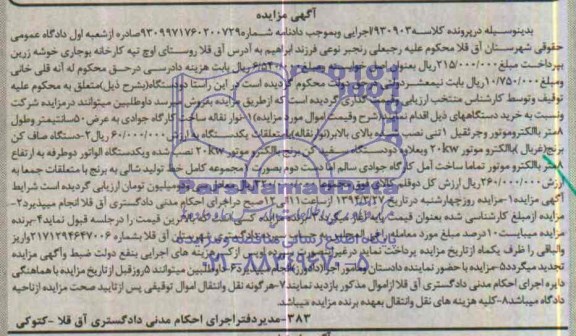 آگهی مزایده
بدینوسیله درپرونده کلاسه ۹۳۰۹۰۳اجرایی وبموجب دادنامه شماره۹۳۰۹۹۷۱۷۶۰۲۰۰۷۲۹صادره ازشعبه اول دادگاه عمومی
حقوقی شهرستان آق قلا محکوم علیه رجبعلی رنجبر نوعی فرزند ابراهیم به آدرس آق قلا روستای اوچ تپه کارخانه بوجاری خوشه زرین
بپرداخت مبلغ۲۱۵/۰۰۰/۰۰۰ریال بعنوان اصل خواسته ریال بابت هزینه دادرسی درحق محکوم له آنه قلی خانی
ومبلغ۱۰/۷۵۰/۰۰۰ریال بابت نیمعشردولتی دولت محکوم گردیده است در این راستا دودستگاه(بشرح ذیل)متعلق به محکوم علیه
توقیف وتوسط کارشناس منتخب ارزیابی گذاری گردیده است که ازطریق مزایده بفروش میرسد داوطلبین میتوانند درمزایده شرکت
ونسبت به خرید دستگاههای ذیل اقدام نمایند(شرح وقیمت اموال مورد مزایده)۱-نوار نقاله ساخت کارگاه جوادی به عرض ۵۰سانتیمتر وطول
۸متر باالکتروموتور وجرثقیل ۱تنی نصب شده بالای بالابر(نوارنقاله)بامتعلقات یکدستگاه به ارزش۶۰/۰۰۰/۰۰۰ریال۲-دستگاه صاف کن
برنج(غربال)باالکترو موتور ۲۰kw وبعلاوه دودستگاه سفید کن برنج باالکترو موتور۲۰kw نصب شده ویکدستگاه الواتور دوطرفه به ارتفاع
۸متر باالکترو موتور تماما ساخت آمل کارگاه جوادی سالم اما دست دوم بصورت مجموعه کامل خط تولید شالی به برنج با متعلقات جمعا به
ارزش۲۶۰/۰۰۰/۰۰۰ریال ارزش کل دوقلم کالای فوق معادل میلیون تومان ارزیابی گردیده است شرایط
آگهی مزایده ۱-مزایده روزچهارشنبه درتاریخ ازساعت۱۱الی۱۲صبح دراجرای احکام مدنی دادگستری آق قلا انجام میپذیرد۲-
مزایده ازمبلغ کارشناسی شده بعنوان قیمت پایه آغاز قیمت را درجلسه قبول نماید۴-برنده
مزایده میبایست۱۰درصد مبلغ مورد مزایده را فی المجلس دادگستری شهرستان آق قلا بشماره ۲۱۷۱۲۹۴۶۴۷۰۰۶واریز
والباقی را ظرف یکماه ازتاریخ مزایده پرداخت نماید درغیر از کسر هزینه های اجرایی بنفع دولت ضبط وآگهی مزایده
تجدید میگردد۵-مزایده باحضور نماینده دادستان ومامور اجرا(دادورز)انجام میپذیرد۶-داوطلبین میتوانند ۵روزقبل ازتاریخ مزایده با هماهنگی
دایره اجرای احکام مدنی دادگستری آق قلا ازاموال مذکور بازدید نمایند۷-هرگونه نقل وانتقال اموال توقیفی پس ازتایید صحت مزایده ازناحیه
دادگاه میباشد۸-کلیه هزینه های نقل وانتقال بعهده برنده مزایده میباشد.
۳۸۳-مدیردفتراجرای احکام مدنی دادگستری آق قلا-کتوکی
پایگاه اطلاع رسانی مناقصه و مزایده
۰۲۱-۸۸۳۴۹۶۷۰-۵